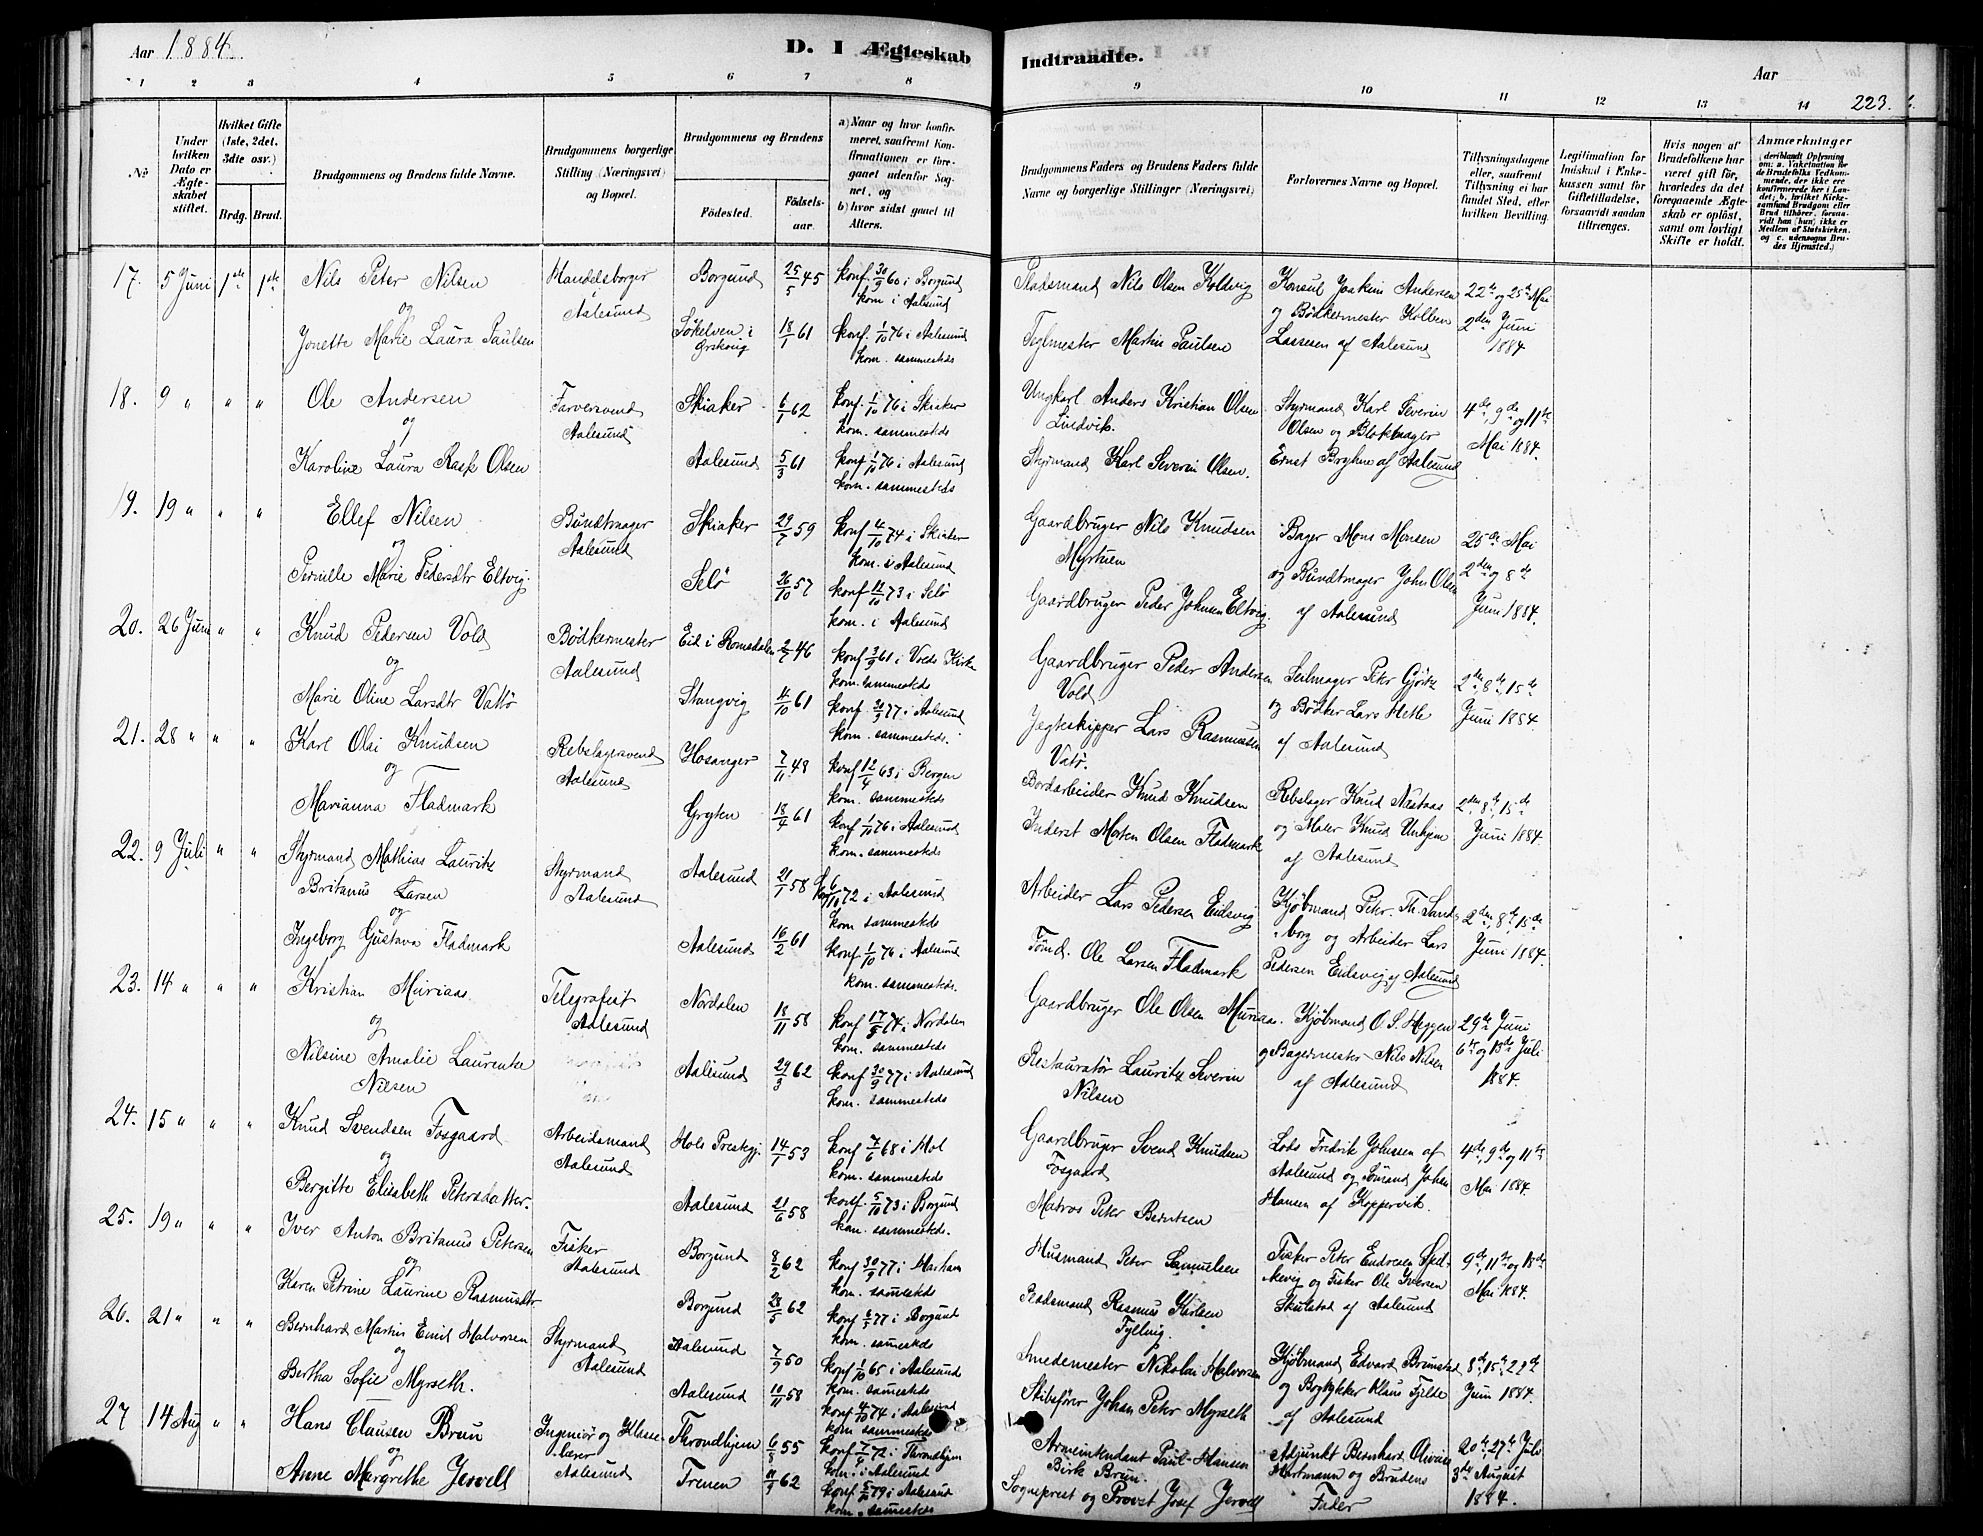 Aar 1884.
D. I Ægteskab
Indtraadte.
Aar
223.
1 2 3 4 5 6 7 8 9 10 11 12 13 14
No
Under hvilken Dato er Ægteskabet stiftet.
Hvilket Gifte (1ste, 2det, 3die osv.)
Brdg. Brud.
Brudgommens og Brudens fulde Navne.
Brudgommens borgerlige Stilling (Næringsvei) og Bopæl.
Brudgommens og Brudens
Fødested. Fødselsaar.
a) Naar og hvor konfirmeret, saafremt Konfirmationen er foregaaet udenfor Sognet, og
b) hvor sidst gaaet til Alters.
Brudgommens Faders og Brudens Faders fulde Navne og borgerlige Stillinger (Næringsvei)
Forlovernes Navne og Bopæl.
Tillysningsdagene eller, saafremt Tillysning ei har fundet Sted, efter hvilken Bevilling.
Legitimation for Indskud i Enkekassen samt for Giftetilladelse, forsaavidt saadan tiltrænges.
Hvis nogen af Brudefolkene har været gift før, hvorledes da det foregaaende Ægteskab er opløst, samt om lovligt Skifte er holdt.
Anmærkninger
17. 5 Juni 1ste 1ste Nils Peter Nilsen Handelsborger Borgund 25/5 45 konf 30/9 60 i Borgund
og Aalesund kom i Aalesund
Jonette Marie Laura Paulsen Søkelven i Ørskoug 18/1 61 konf. 1/10 76 i Aalesund
kom. sammesteds
Pladsmand Nils Olsen Koldvig Konsul Joakim Andersen 22de og 25de Mai
og Bødkermester Kolben 2den Juni
Teglmester Martin Paulsen Lassesen af Aalesund 1884
18. 9 " " " Ole Andersen Farversvend Skiaker 6/1 62 konf. 1/10 76 i Skiaker
og Aalesund kom. sammesteds
Karoline Laura Rask Olsen Aalesund 5/3 61 konf. 1/10 76 i Aalesund
kom. sammesteds
Ungkarl Anders Kristian Olsen Styrmand Karl Severin 4de, 9de og 11te
Lindvik. Olsen og Blokmager Mai 1884.
Styrmand Karl Severin Olsen. Ernst Bryhne af Aalesund
19. 19 " " " Ellef Nilsen Bundtmager Skiaker 29/7 59 konf 4/10 74 i Skiaker
og Aalesund kom. i Aalesund
Pernille Marie Pedersdtr Eltvig. Selø 26/10 57 konf 12/10 73 i Selø
kom. i Aalesund
Gaardbruger Nils Knudsen Bager Mons Monsen 25de Mai
Myrtuen og Bundtmager John Olsen 2den og 8de
Gaardbruger Peder Johnsen Eltvig. af Aalesund Juni 1884.
20. 26 Juni " " Knud Pedersen Vold Bødkermester Eid i Romsdalen 2/7 46 konf 3/9 61 i Volds Kirke
og Aalesund kom. sammesteds
Marie Oline Larsdtr Vattø Stangvig 11/10 61 konf. 30/9 77 i Aalesund
kom. sammesteds.
Gaardbruger Peder Andersen Seilmager Peter Gjørtz 2den, 8de, 15de
Vold og Bødker Lars Hetle Juni 1884
Jægteskipper Lars Rasmussen af Aalesund
Vatø.
21. 28 " " " Karl Olai Knudsen Rebslagersvend Hosanger 7/11 48 konf 12/4 63 i Bergen
og Aalesund kom. sammesteds
Marianna Fladmark Gryten 18/4 61 konf 1/10 76 i Aalesund
kom. sammesteds
Bordarbeider Knud Knudsen Rebslager Knud Næstaas 2den, 8de, 15de
Inderst Morten Olsen Fladmark og Maler Knud Unhjem Juni 1884.
af Aalesund
22. 9 Juli " " Styrmand Mathias Lauritz Styrmand Aalesund 21/1 58 konf 6/10 72 i Aalesund
Britanus Larsen Aalesund kom sammesteds
og
Ingeborg Gustava Fladmark Aalesund 16/2 61 konf 1/10 76 i Aalesund
kom. sammesteds.
Arbeider Lars Pedersen Eidsvig Kjøbmand Peter Th. Sand- 2den, 8de, 15de
borg og Arbeider Lars Juni 1884.
Tømd. Ole Larsen Fladmark Pedersen Eidsvig af Aalesund
23. 14 " " " Kristian Muriaas Telegrafist Nordalen 18/11 58 konf 17/5 74 i Nordalen
og Aalesund kom. sammesteds
Nilsine Amalie Laurentze Aalesund 29/3 62 konf 30/9 77 i Aalesund
Nilsen kom. sammesteds
Gaardbruger Ole Olsen Muriaas. Kjøbmand O. S. Heggen 29de Juni
og Bagermester Nils Nilsen 6te og 13de Juli
Restauratør Lauritz Severin af Aalesund 1884.
Nilsen
24. 15 " " " Knud Svendsen Fosgaard Arbeidsmand Hols Prestegj. 14/7 53 konf 7/6 68 i Hol
og Aalesund kom. sammesteds
Bergitte Elisabeth Petersdatter. Aalesund 21/6 58 konf. 5/10 73 i Borgund
kom. sammesteds.
Gaardbruger Svend Knudsen Lods Fredrik Johnsen af 4de, 9de og 11te
Fosgaard Aalesund og Sømand Johan Mai 1884.
Matros Peter Berntsen Hansen af Koppervik.
25. 19 " " " Iver Anton Britanus Petersen Fisker Borgund 8/2 62 konf 30/9 77 i Harham
og Aalesund kom. sammesteds
Karen Petrine Laurine Rasmusdtr Borgund 28/5 62 konf 6/5 77 i Borgund
kom. sammesteds
Husmand Peter Samuelsen Fisker Peter Endresen Sped- 9de, 11te og 18de
kevig og Fisker Ole Iversen Mai 1884.
Pladsmand Rasmus Karlsen Skulstad af Aalesund
Fylling.
26. 21 " " " Bernhard Martin Emil Halvorsen Styrmand Aalesund 7/9 50 konf 1/10 65 i Aalesund
og Aalesund kom. sammesteds
Bertha Sofie Myrseth. Aalesund 10/11 58 konf 4/10 74 i Aalesund
kom sammesteds
Smedemester Nikolai Halvorsen Kjøbmand Edvard Brunstad 8de, 15de, 22de
og Bogtykker Klaus Fjelde Juni 1884.
Skibsfører Johan Peter Myrseth af Aalesund
27 14 Aug " " Hans Clausen Brun Ingeniør og Klasse- Throndhjem 6/8 55 konf 7/4 72 i Throndhjem
og lærer kom. i Aalesund
Anne Margrethe Jervell Aalesund Trenen 11/9 62 konf 5/10 79 i Aalesund
kom. sammesteds
Armeintendant Paul Hansen Adjunkt Bernhard Olivius 20de 27de Juli
Birk Brun. Hartmann og Brudens 3die August
Sogneprest og Provst Josef Jervell Fader 1884.